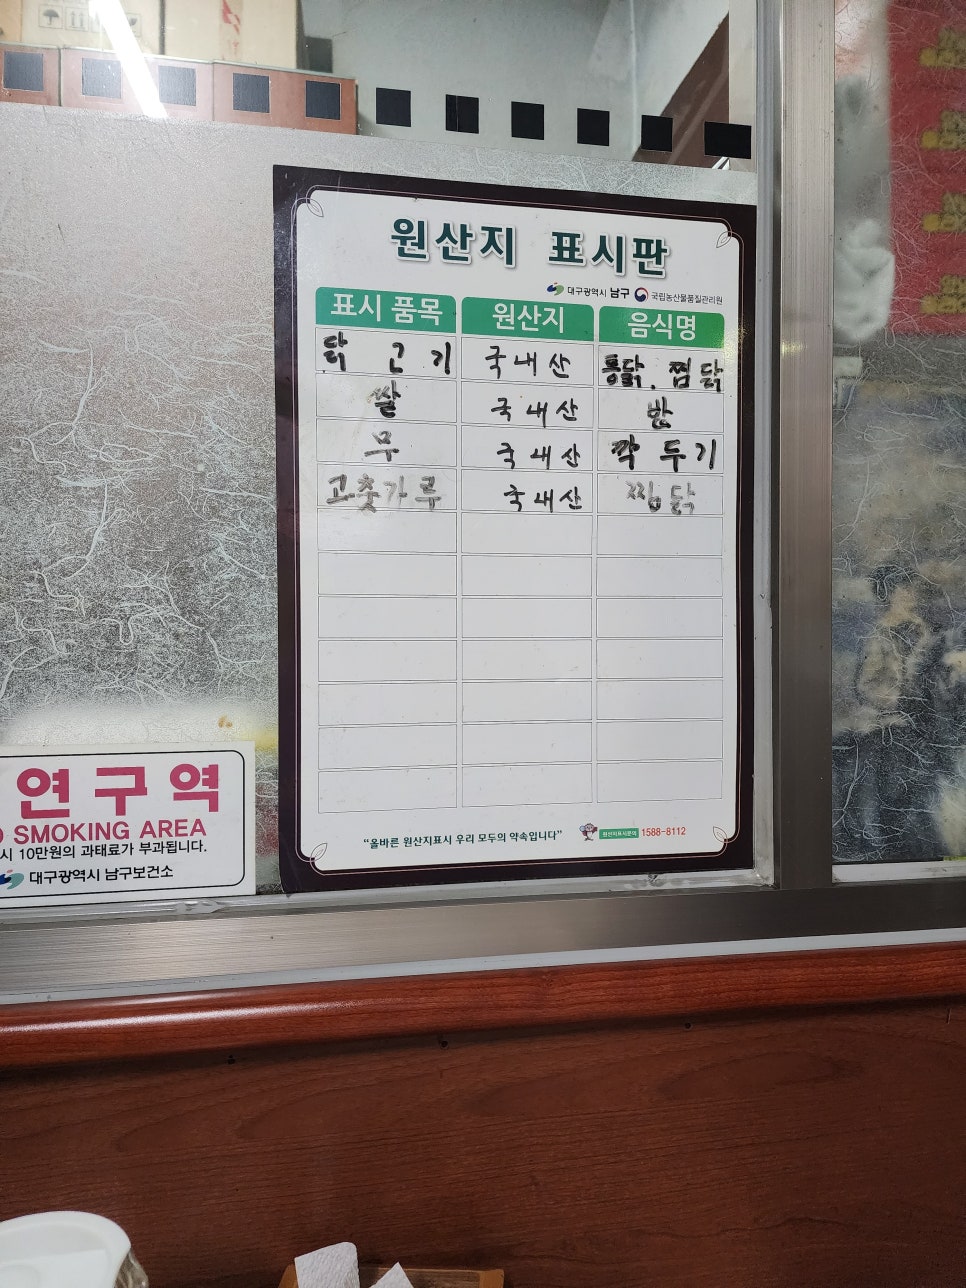 원산지 표시판
대구광역시 남구 국립농산물품질관리원
표시 품목 원산지 음식명
닭 고기 국내산 통닭. 찜닭
쌀 국내산 밥
무 국내산 깍두기
고춧가루 국내산 찜닭
"올바른 원산지표시 우리 모두의 약속입니다" 원산지표시문의 1588-8112
연구역
O SMOKING AREA
시 10만원의 과태료가 부과됩니다.
대구광역시 남구보건소